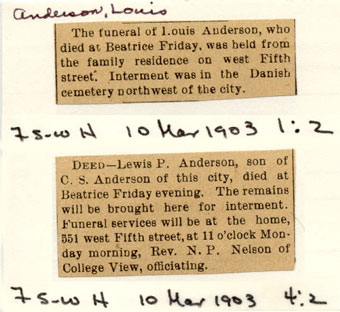 Anderson, Louis
The funeral of Louis Anderson, who
died at Beatrice Friday, was held from
the family residence on west Fifth
street. Interment was in the Danish
cemetery northwest of the city.
7 S-W N 10 Mar 1903 1:2
DEED—Lewis P. Anderson, son of
C. S. Anderson of this city, died at
Beatrice Friday evening. The remains
will be brought here for interment.
Funeral services will be at the home,
551 west Fifth street, at 11 o'clock Mon-
day morning, Rev. N. P. Nelson of
College View, officiating.
7 S-W N 10 Mar 1903 4:2